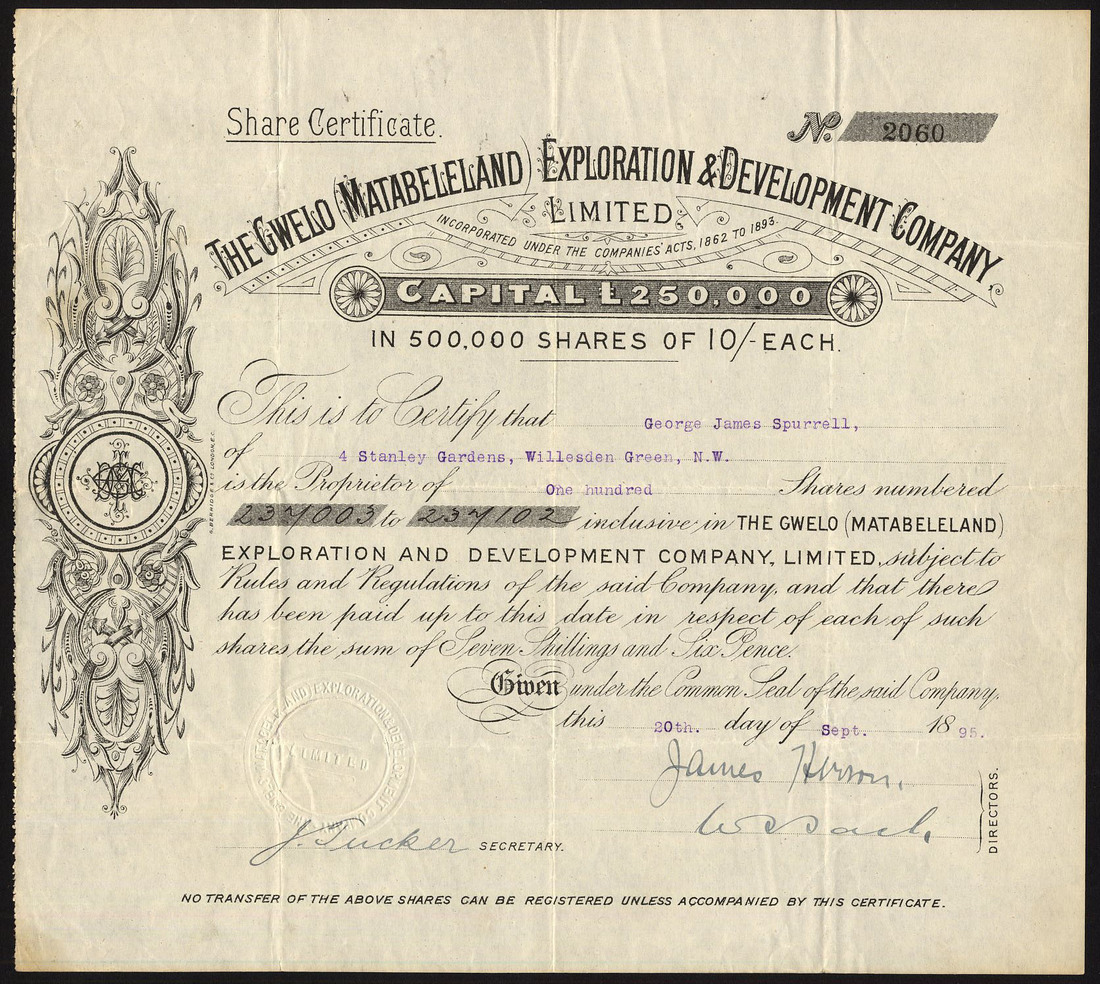 Share Certificate.
No. 2060
THE GWELO (MATABELELAND) EXPLORATION & DEVELOPMENT COMPANY,
LIMITED
INCORPORATED UNDER THE COMPANIES' ACTS, 1862 TO 1893.
CAPITAL £250,000
IN 500,000 SHARES OF 10/- EACH.
This is to Certify that George James Spurrell,
of 4 Stanley Gardens, Willesden Green, N.W.
is the Proprietor of One hundred Shares numbered
237003 to 237102 inclusive in THE GWELO (MATABELELAND)
EXPLORATION AND DEVELOPMENT COMPANY, LIMITED, subject to
Rules and Regulations of the said Company, and that there
has been paid up to this date in respect of each of such
shares the sum of Seven Shillings and Six Pence.
Given under the Common Seal of the said Company,
this 20th. day of Sept. 1895.
James
DIRECTORS.
LIMITED
J. Tucker SECRETARY.
NO TRANSFER OF THE ABOVE SHARES CAN BE REGISTERED UNLESS ACCOMPANIED BY THIS CERTIFICATE.